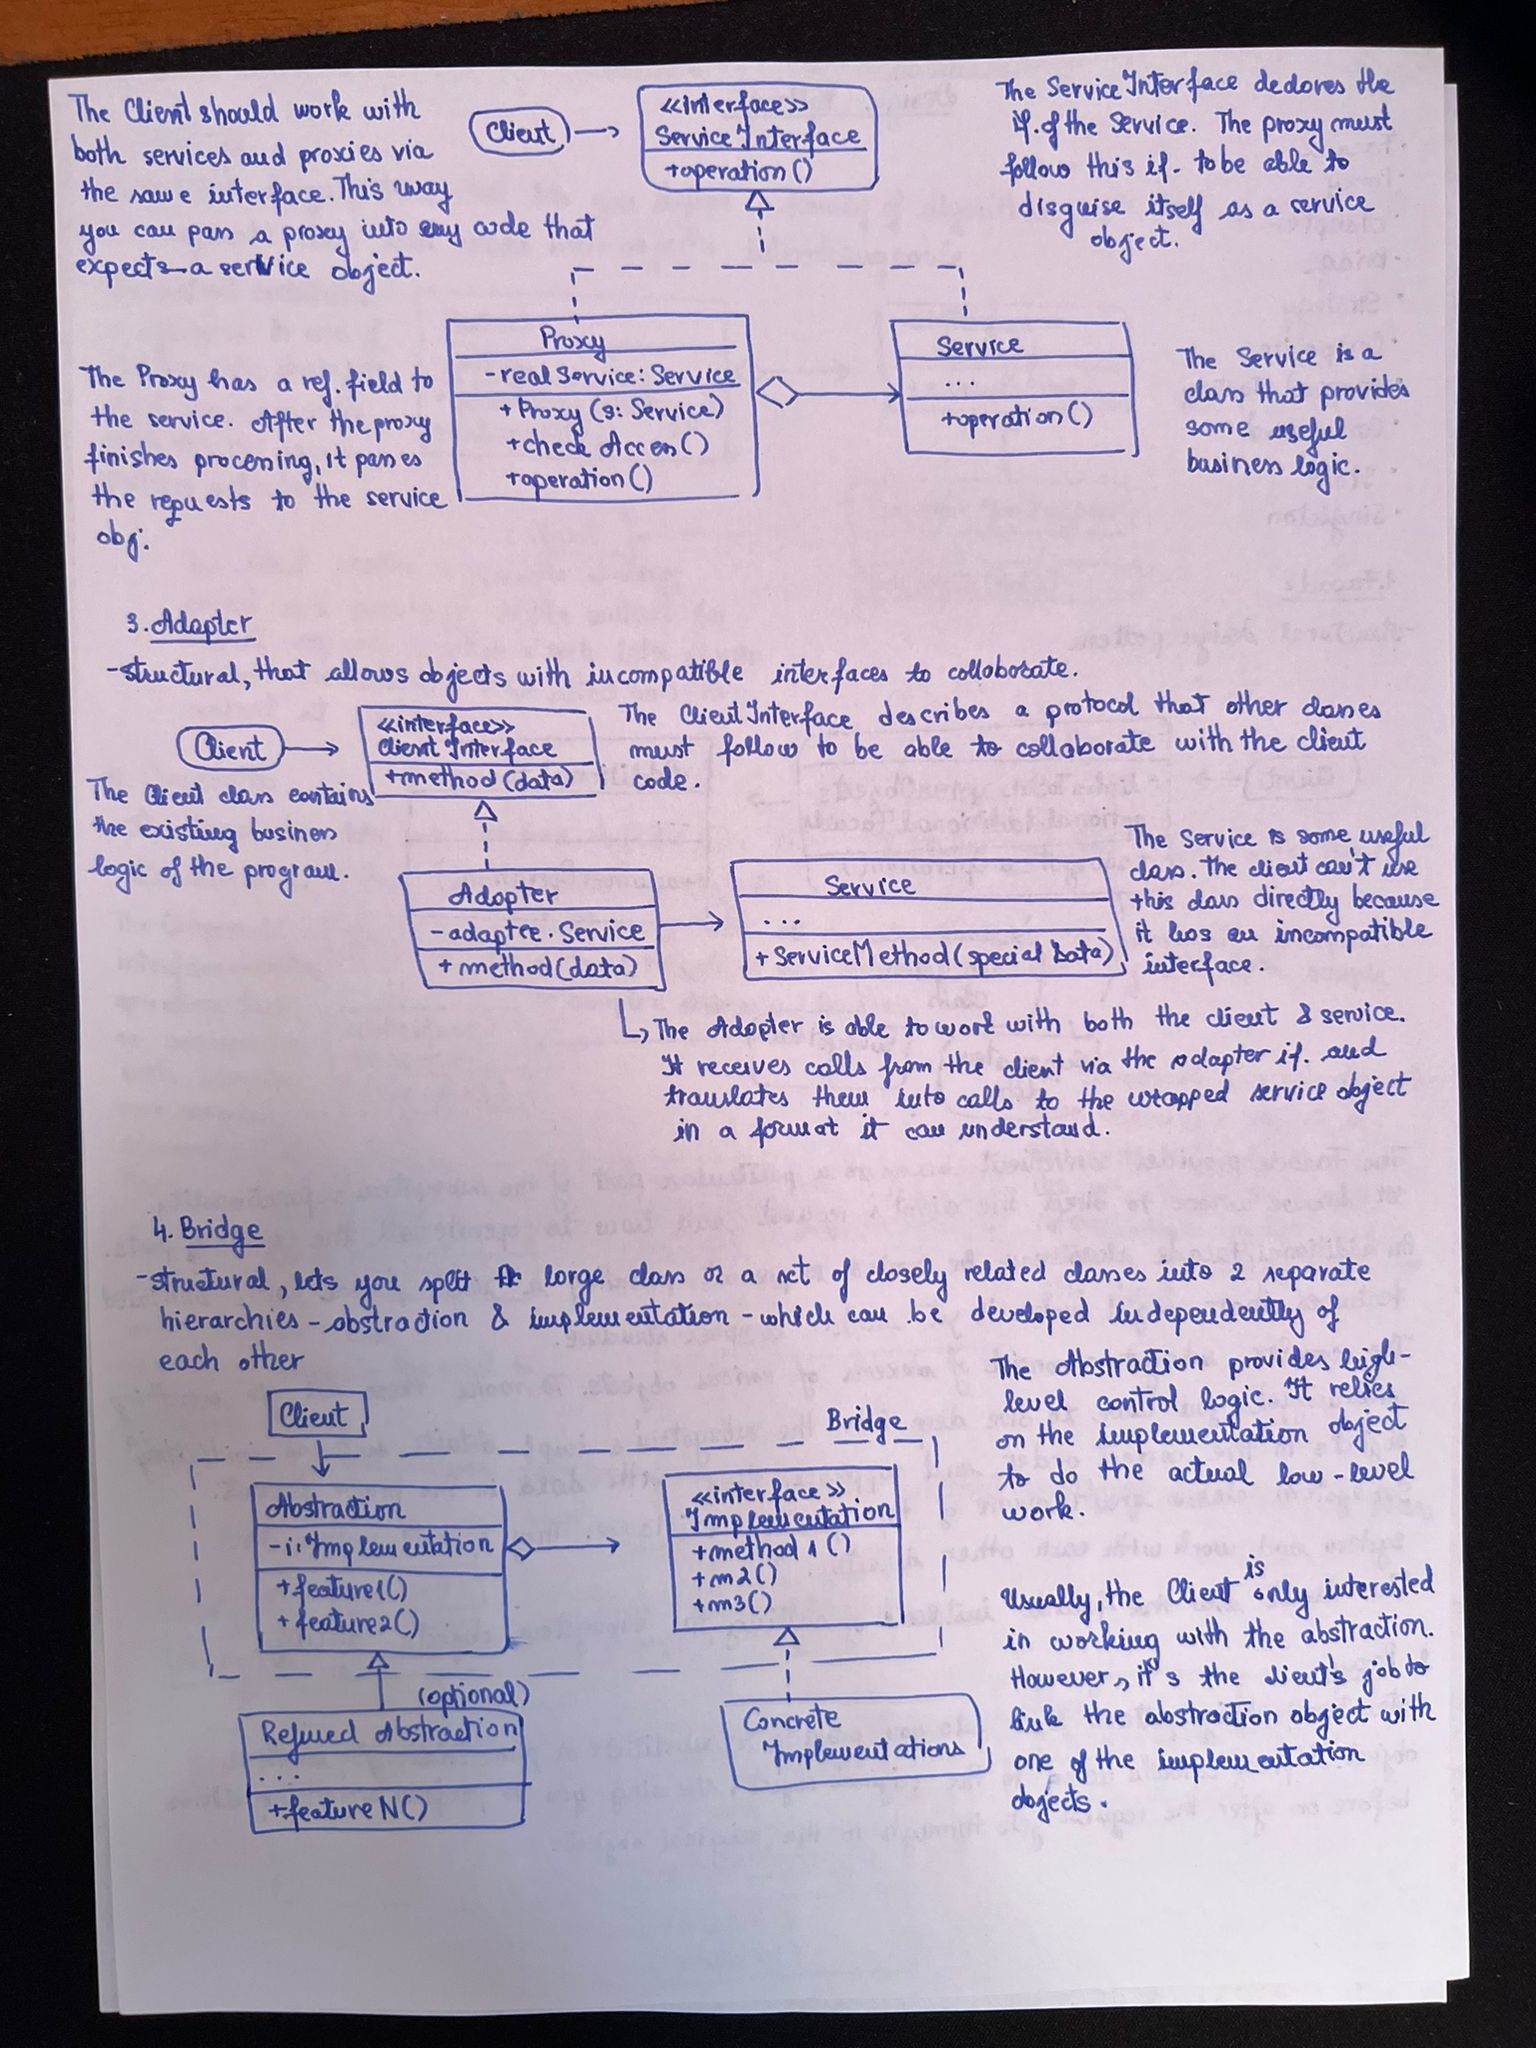 The Client should work with
both services and proxies via
the same interface. This way
you can pass a proxy into any code that
expects a service object.
Client
<<interface>>
Service Interface
+operation()
The Service Interface declares the
if. of the Service. The proxy must
follow this if. to be able to
disguise itself as a service
object.
Proxy
-realService: Service
+Proxy (s: Service)
+check Access()
+operation()
Service
...
+operation()
The Proxy has a ref. field to
the service. After the proxy
finishes processing, it passes
the requests to the service
obj.
The Service is a
class that provides
some useful
business logic.
3. Adapter
-structural, that allows objects with incompatible interfaces to collaborate.
Client
<<interface>>
Client Interface
+method(data)
The Client Interface describes a protocol that other classes
must follow to be able to collaborate with the client
code.
The Client class contains
the existing business
logic of the program.
Adapter
-adaptee. Service
+method(data)
Service
...
+ServiceMethod(special Data)
The Service is some useful
class. The client can't use
this class directly because
it has an incompatible
interface.
The Adapter is able to work with both the client & service.
It receives calls from the client via the adapter if. and
translates them into calls to the wrapped service object
in a format it can understand.
4. Bridge
-structural, lets you split large class or a set of closely related classes into 2 separate
hierarchies - abstraction & implementation - which can be developed independently of
each other
Client
Bridge
Abstraction
-i: Implementation
+feature1()
+feature2()
<<interface>>
Implementation
+method1()
+m2()
+m3()
(optional)
Refined Abstraction
...
+feature N()
Concrete
Implementations
The Abstraction provides high-
level control logic. It relies
on the implementation object
to do the actual low-level
work.
Usually, the Client is only interested
in working with the abstraction.
However, it's the client's job to
link the abstraction object with
one of the implementation
objects.